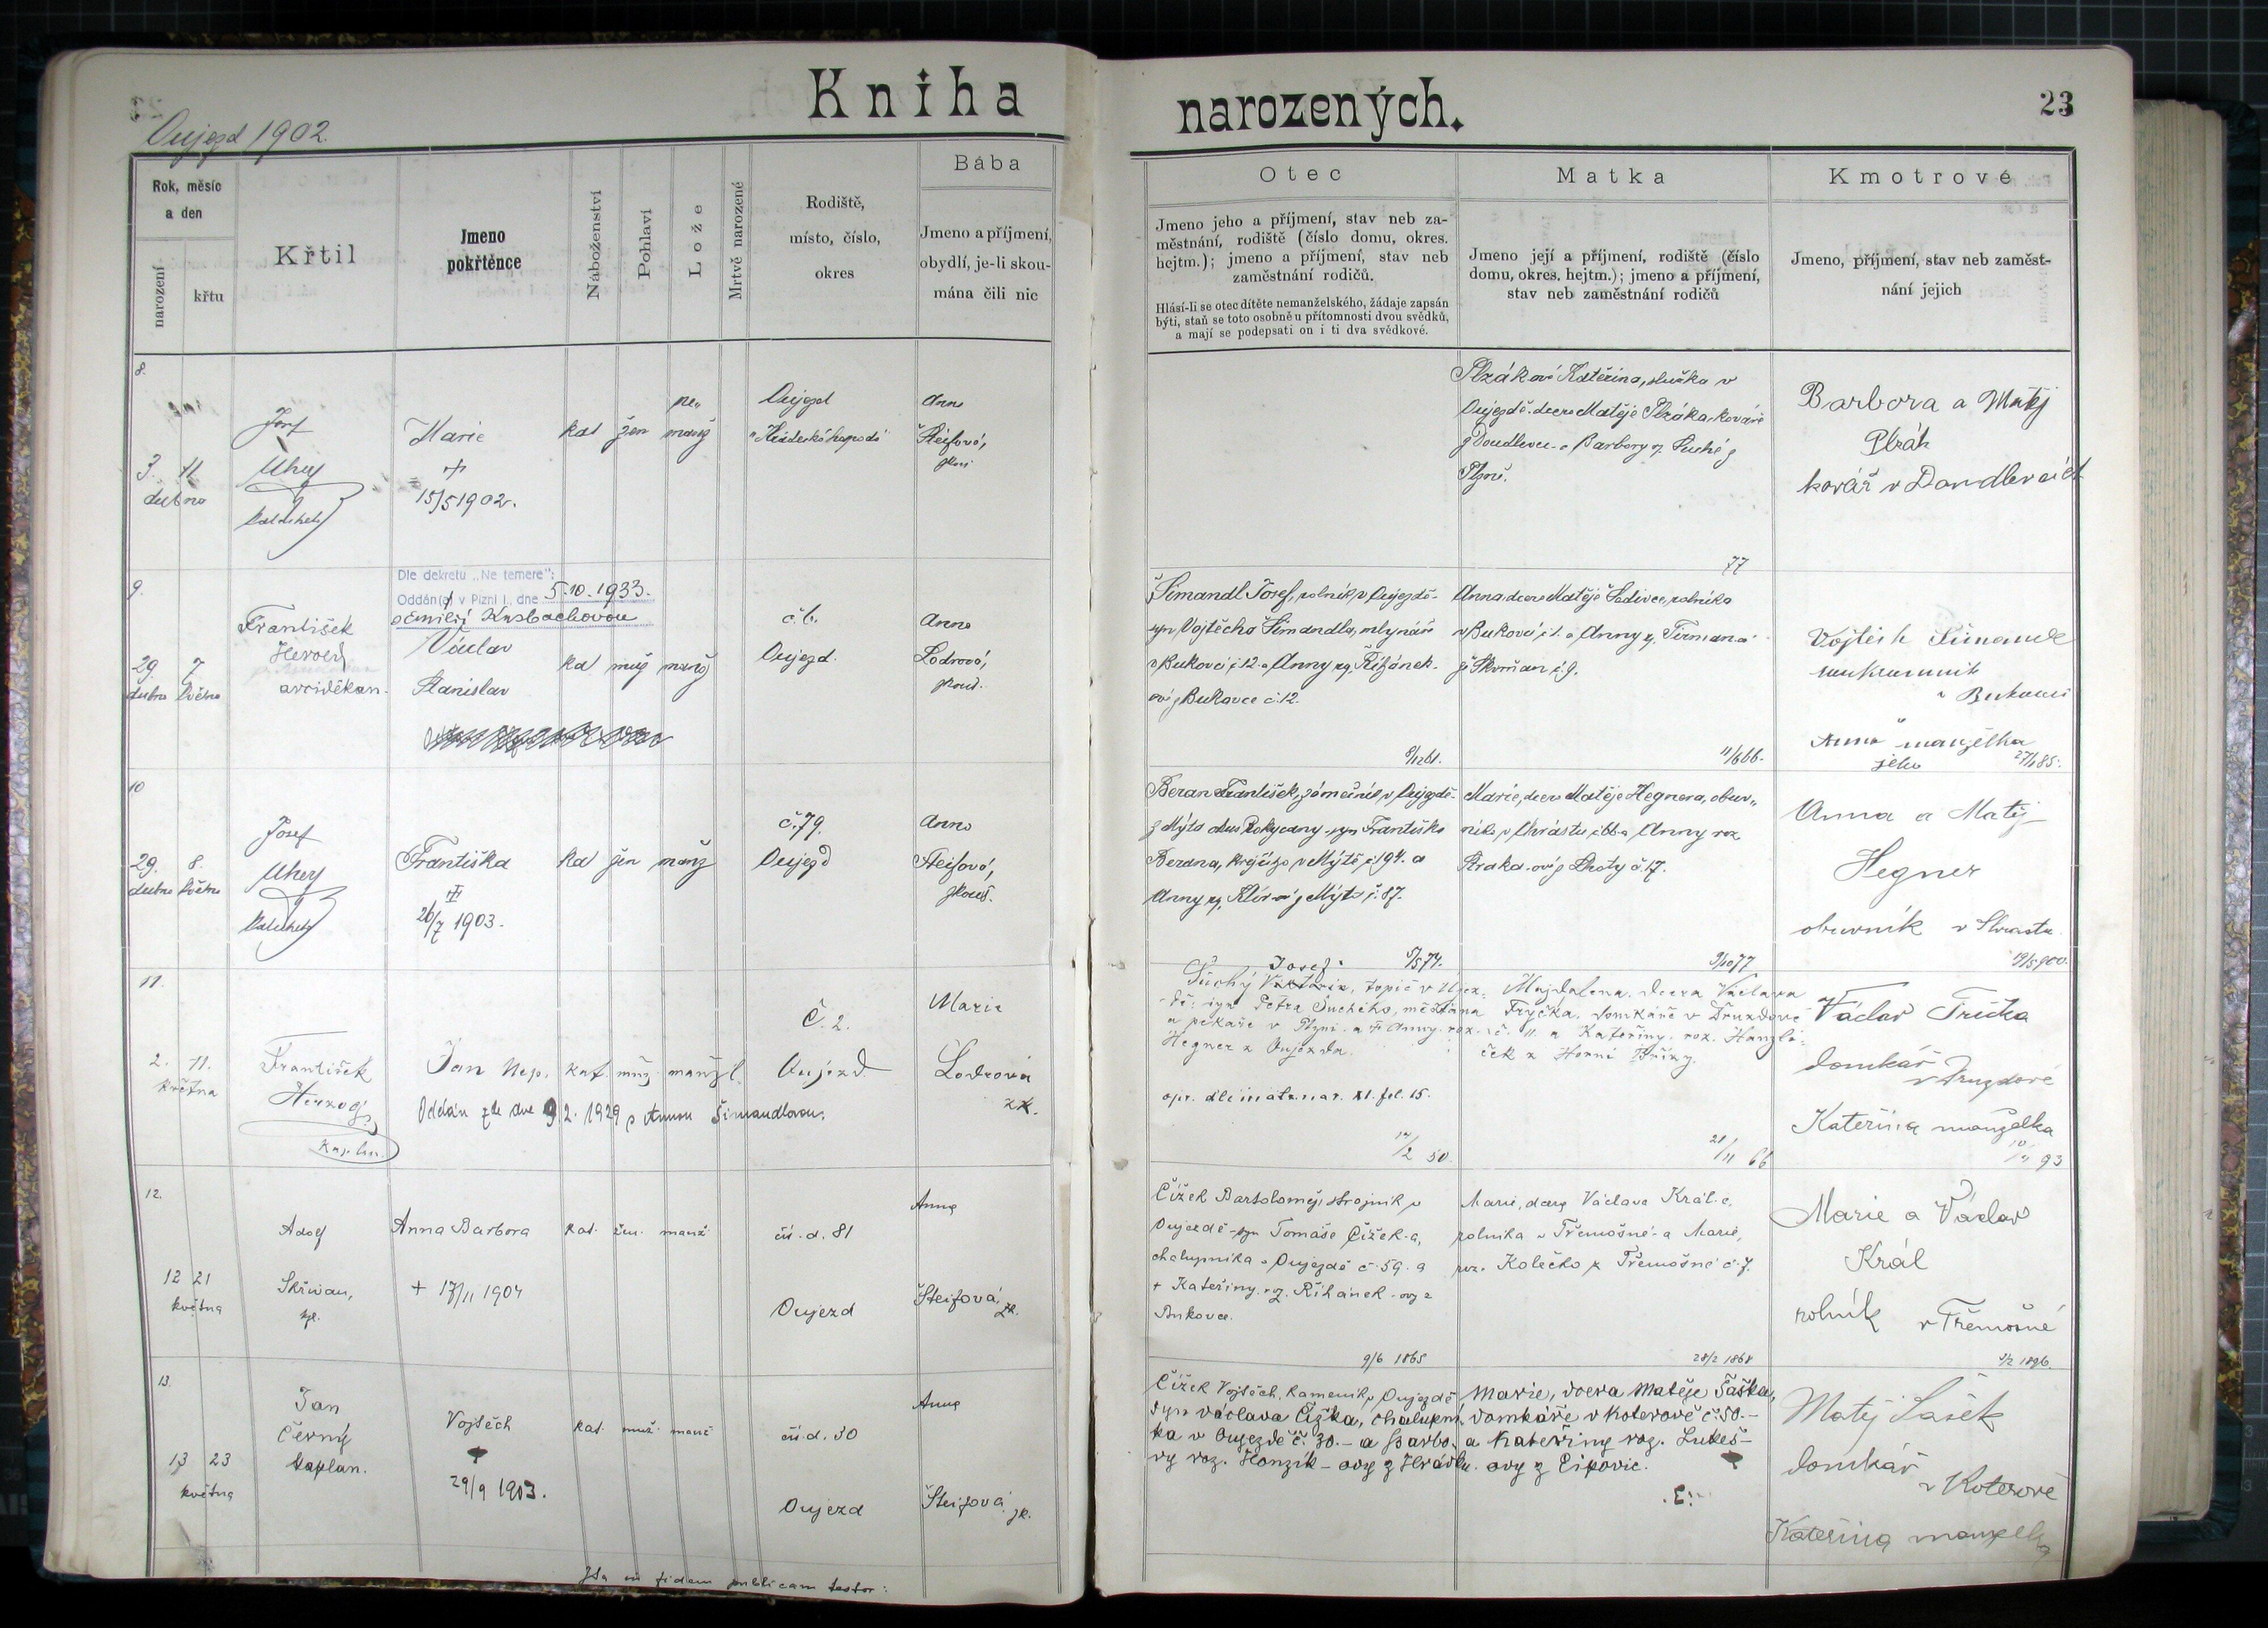 Kniha narozených.
23
Oujezd 1902.
Rok, měsíc
a den
narození
křtu
Křtil
Jmeno
pokřtěnce
Náboženství
Pohlaví
Lože
Mrtvě narozené
Rodiště,
místo, číslo,
okres
Bába
Jmeno a příjmení,
obydlí, je-li skou-
mána čili nic
Otec
Jmeno jeho a příjmení, stav neb za-
městnání, rodiště (číslo domu, okres.
hejtm.); jmeno a příjmení, stav neb
zaměstnání rodičů.
Hlásí-li se otec dítěte nemanželského, žádaje zapsán
býti, staň se toto osobně u přítomnosti dvou svědků,
a mají se podepsati on i ti dva svědkové.
Matka
Jmeno její a příjmení, rodiště (číslo
domu, okres. hejtm.); jmeno a příjmení,
stav neb zaměstnání rodičů
Kmotrové
Jmeno, příjmení, stav neb zaměst-
nání jejich
8.
3. 11.
dubna
Josef
Uhey
Marie
+
15/5 1902.
kat žen
ne„
manž
Oujezd
Anna
Šteifová,
Plzáková Kateřina, služka v
Oujezdě, dcera Matěje Plzáka, kováře
z Doudlevec a Barbory r. Suché z
Plzně.
77
Barbora a Matěj
Plzák
kovář v Doudlevcích
9.
29. 7.
dubna května
František
Herold
arciděkan.
Dle dekretu „Ne temere":
Oddán(a) v Plzni I. dne 5.10.1933.
Václav
Stanislav
kat muž manž
č. 6.
Oujezd.
Anna
Lodrová,
zkouš.
Šimandl Josef, rolník v Oujezdě-
syn Vojtěcha Šimandla, mlynáře
v Bukovci č. 12. a Anny roz. Řihánek-
ové z Bukovce č. 12.
8/12 61.
Anna dcera Matěje Sedivce, rolníka
11/6 66.
Vojtěch Šimandl
v Bukovci
Anna manželka
jeho
10
29. 8.
dubna května
Josef
Uhey
Františka
26/7 1903.
kat žen manž
č. 79.
Oujezd
Anna
Šteifová,
zkouš.
Beran František, zámečník v Oujezdě-
z Mýta okres Rokycany - syn Františka
Berana, krejčího v Mýtě č. 194. a
5/5 74.
Marie, dcera Matěje Hegnera, obuv„
níka v Chrástu č. 66 a Anny roz
Straka-ové z Lhoty č. 17.
9/10 77
Anna a Matěj
Hegner
obuvník v Chrastu
19/5 900.
11.
2. 11.
května
František
Herzog
kaplan.
Jan Nep. kat. muž. manžl.
Oddán zde dne 9.2.1929 s Annou Šimandlovou.
Č. 2.
Oujezd
Marie
Lodrová
zk.
Josef
Suchý, topič v Ujez-
dě, syn Petra Suchého, měšťana
a pekaře v Plzni a Anny roz.
Hegner z Oujezda.
opr. dle matr. nar. XI. fol. 15.
14/2 50.
Majdalena, dcera Václava
Tryčka, domkáře v Druzdové
č. 11. a Kateřiny, roz. Hanzli-
ček z Horní Břízy.
21/11 66
Václav Tricka
domkář
v Druzdové
Kateřina manželka
93
12.
12 21
května
Adolf
Skřivan,
kpl.
Anna Barbora
+ 17/11 1904
kat. žen. manž.
čís. d. 81
Oujezd
Anna
Šteifová,
zk.
Čížek Bartoloměj, strojník v
Oujezdě - syn Tomáše Čížek-a,
chalupníka v Oujezdě č. 59. a
+ Kateřiny roz. Řihánek-ovy z
Bukovce.
9/6 1865
Marie, dcera Václava Král-e,
rolníka v Třemošné a Marie,
roz. Kolečko z Třemošné č. 7.
28/2 1868
Marie a Václav
Král
rolník v Třemošné
1/2 1896.
13.
13 23
května
Jan
Černý
kaplan.
Vojtěch
29/9 1903.
kat. muž. manž
čís. d. 30
Oujezd
Anna
Šteifová
zk.
Čížek Vojtěch, kameník v Oujezdě
syn Václava Čížka, chalupní-
ka v Oujezdě č. 30.- a Barbo-
ry roz. Honzík-ovy z Hrádku.
Marie, dcera Matěje Šaška,
domkáře v Koterově č. 50.-
a Kateřiny roz. Lukeš-
ovy z Lipovic.
Matěj Šašek
domkář
v Koterově
Kateřina manželka
Ita in fidem publicam testor: